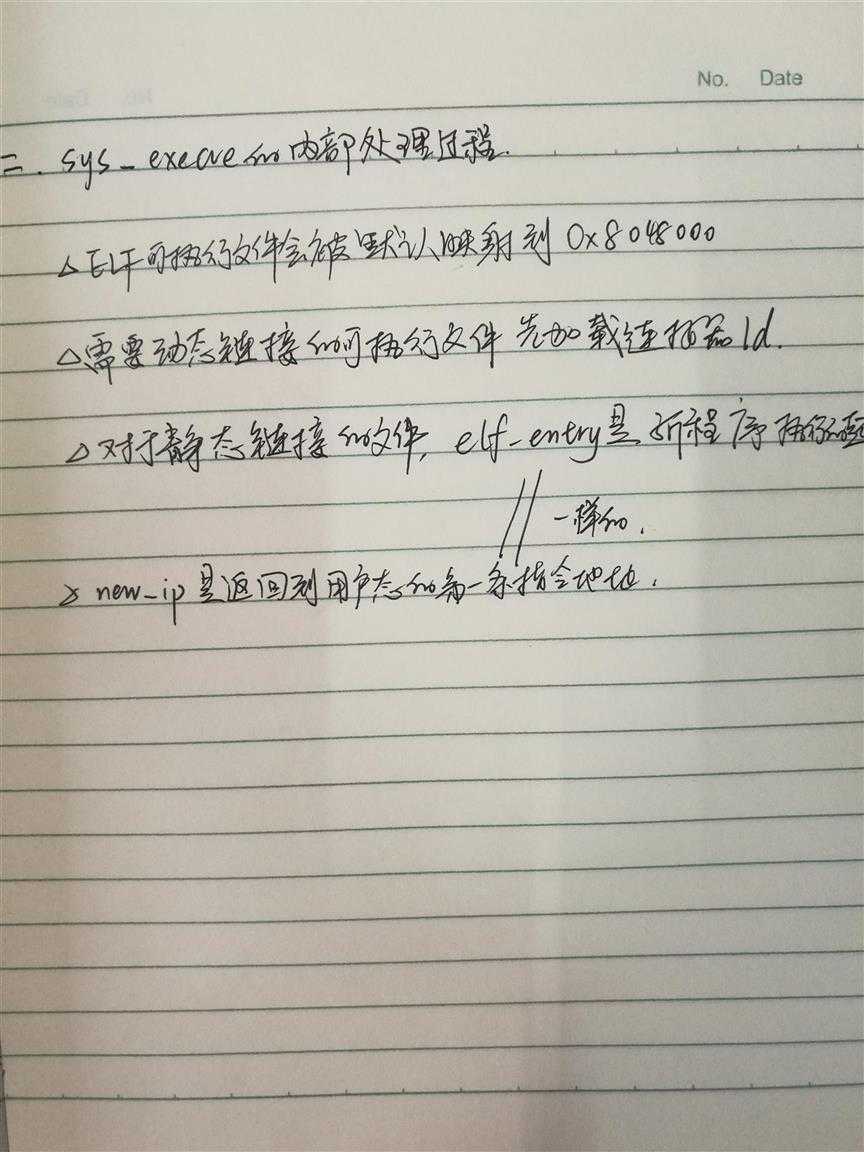 No. Date
二. sys_execve的内部处理过程.
△ ELF可执行文件会被默认映射到 0x8048000
△ 需要动态链接的可执行文件 先加载连接器ld.
△ 对于静态链接的文件, elf_entry是新程序执行的起
// 一样的.
new_ip是返回到用户态的第一条指令地址.